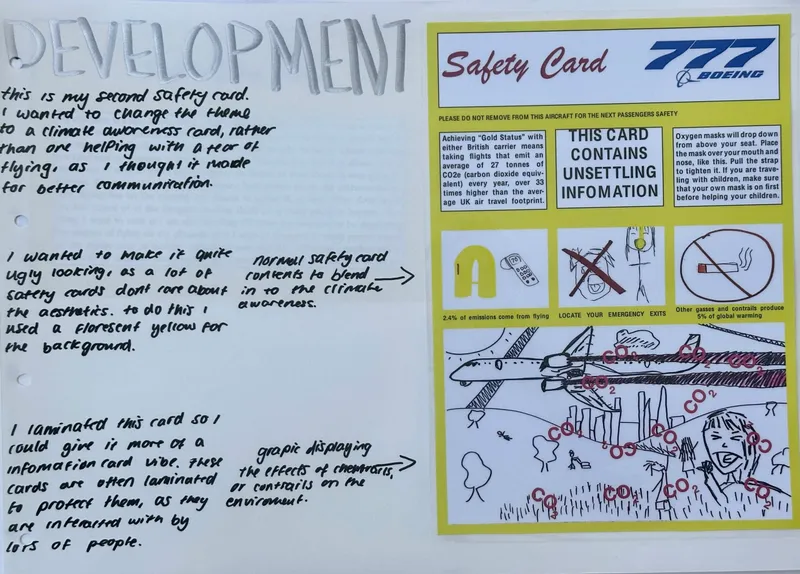 DEVELOPMENT
this is my second safety card.
I wanted to change the theme
to a climate awareness card, rather
than one helping with a fear of
flying, as I thought it made
for better communication.
I wanted to make it quite
ugly looking, as a lot of
safety cards dont care about
the aesthetics. to do this I
used a floresent yellow for
the background.
normal safety card
contents to blend
in to the climate
awareness.
I laminated this card so I
could give it more of a
infomation card vibe. these
cards are often laminated
to protect them, as they
are interacted with by
lots of people.
grapic displaying
the effects of chemtrails,
or contrails on the
enviroment.
Safety Card
777
BOEING
PLEASE DO NOT REMOVE FROM THIS AIRCRAFT FOR THE NEXT PASSENGERS SAFETY
Achieving "Gold Status" with
either British carrier means
taking flights that emit an
average of 27 tonnes of
CO2e (carbon dioxide equiv-
alent) every year, over 33
times higher than the aver-
age UK air travel footprint.
THIS CARD
CONTAINS
UNSETTLING
INFOMATION
Oxygen masks will drop down
from above your seat. Place
the mask over your mouth and
nose, like this. Pull the strap
to tighten it. If you are trave-
ling with children, make sure
that your own mask is on first
before helping your children.
2.4% of emissions come from flying
LOCATE YOUR EMERGENCY EXITS
Other gasses and contrails produce
5% of global warming
CO2
CO2
CO2
CO2
CO2
CO2
CO2
CO2
CO2
CO2
CO2
CO2